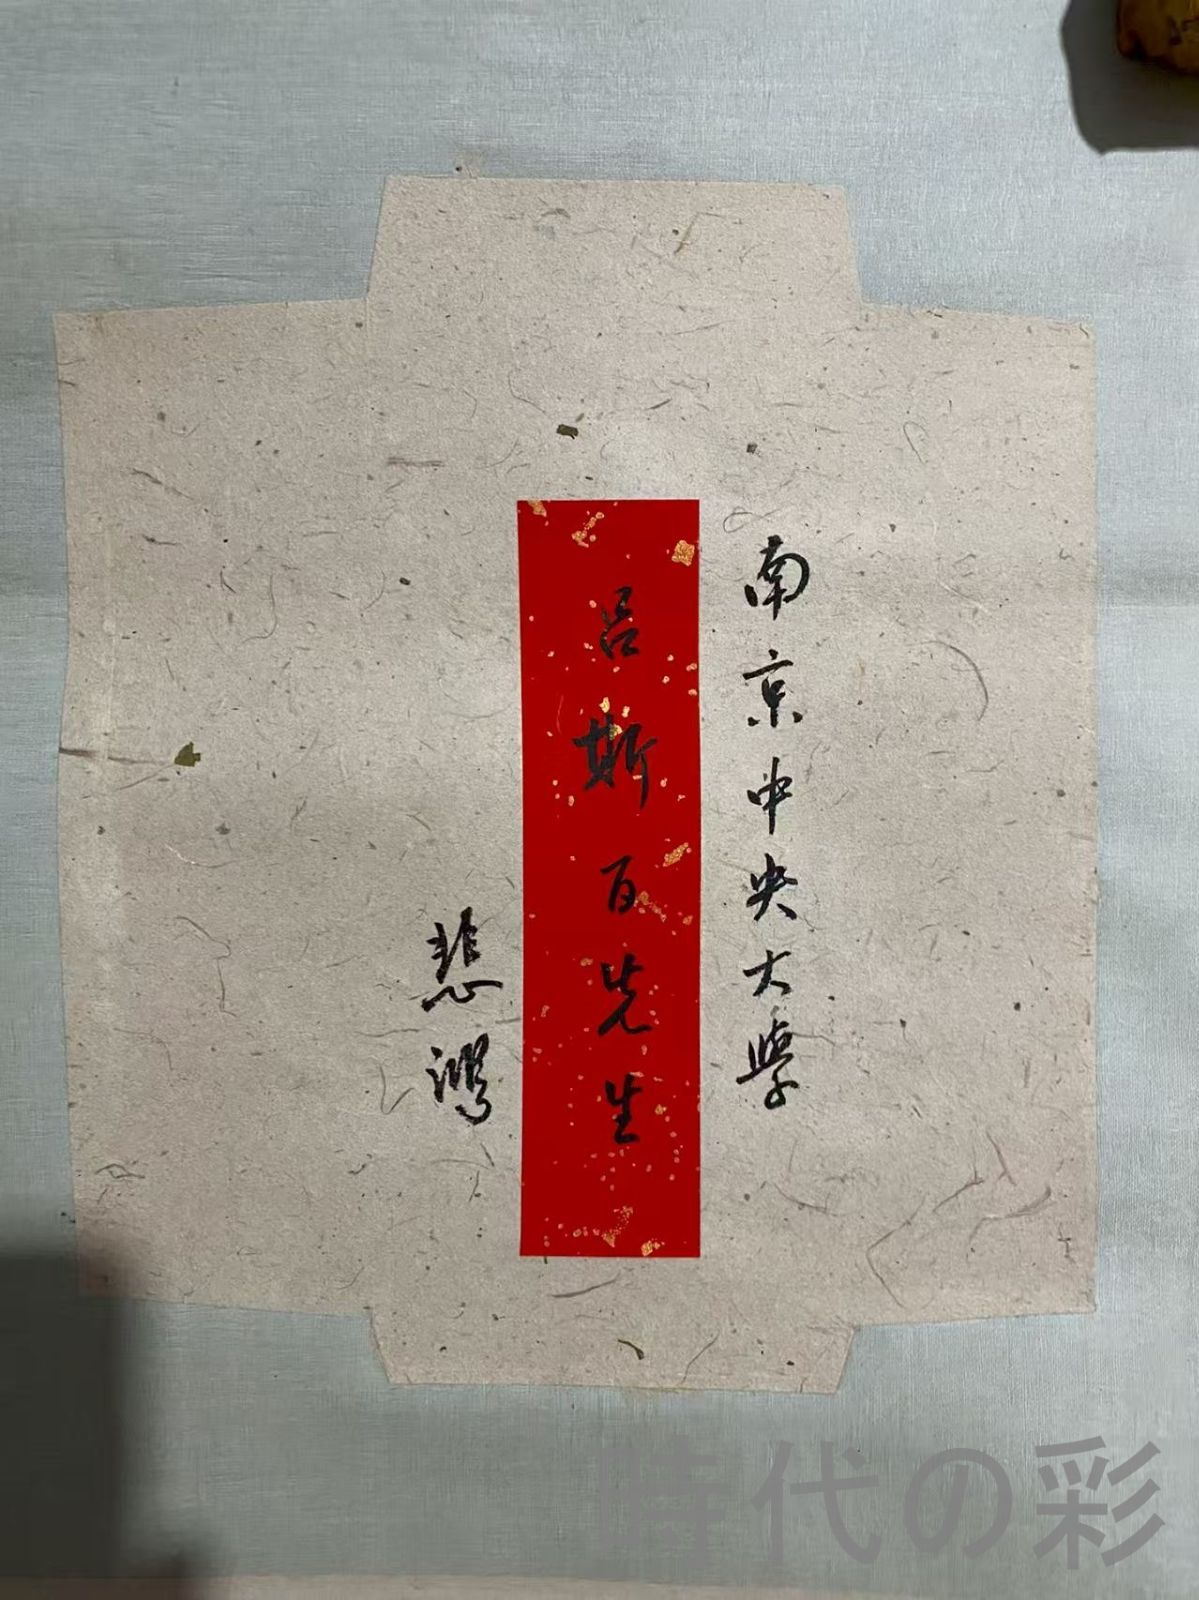 南京中央大學
呂斯百先生
悲鴻
時代の彩